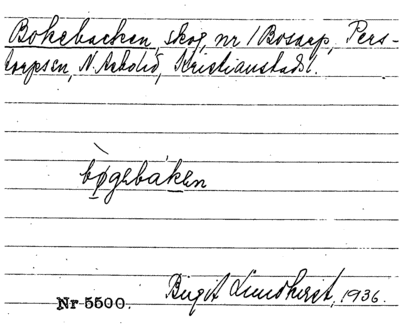 Bokebacken, skog, nr 1 Bosarp, Pers-
torpsen, N. Åsbo hd, Kristianstads l.
bøgebaken
Nr 5500.
Birgit Lundkvist, 1936.